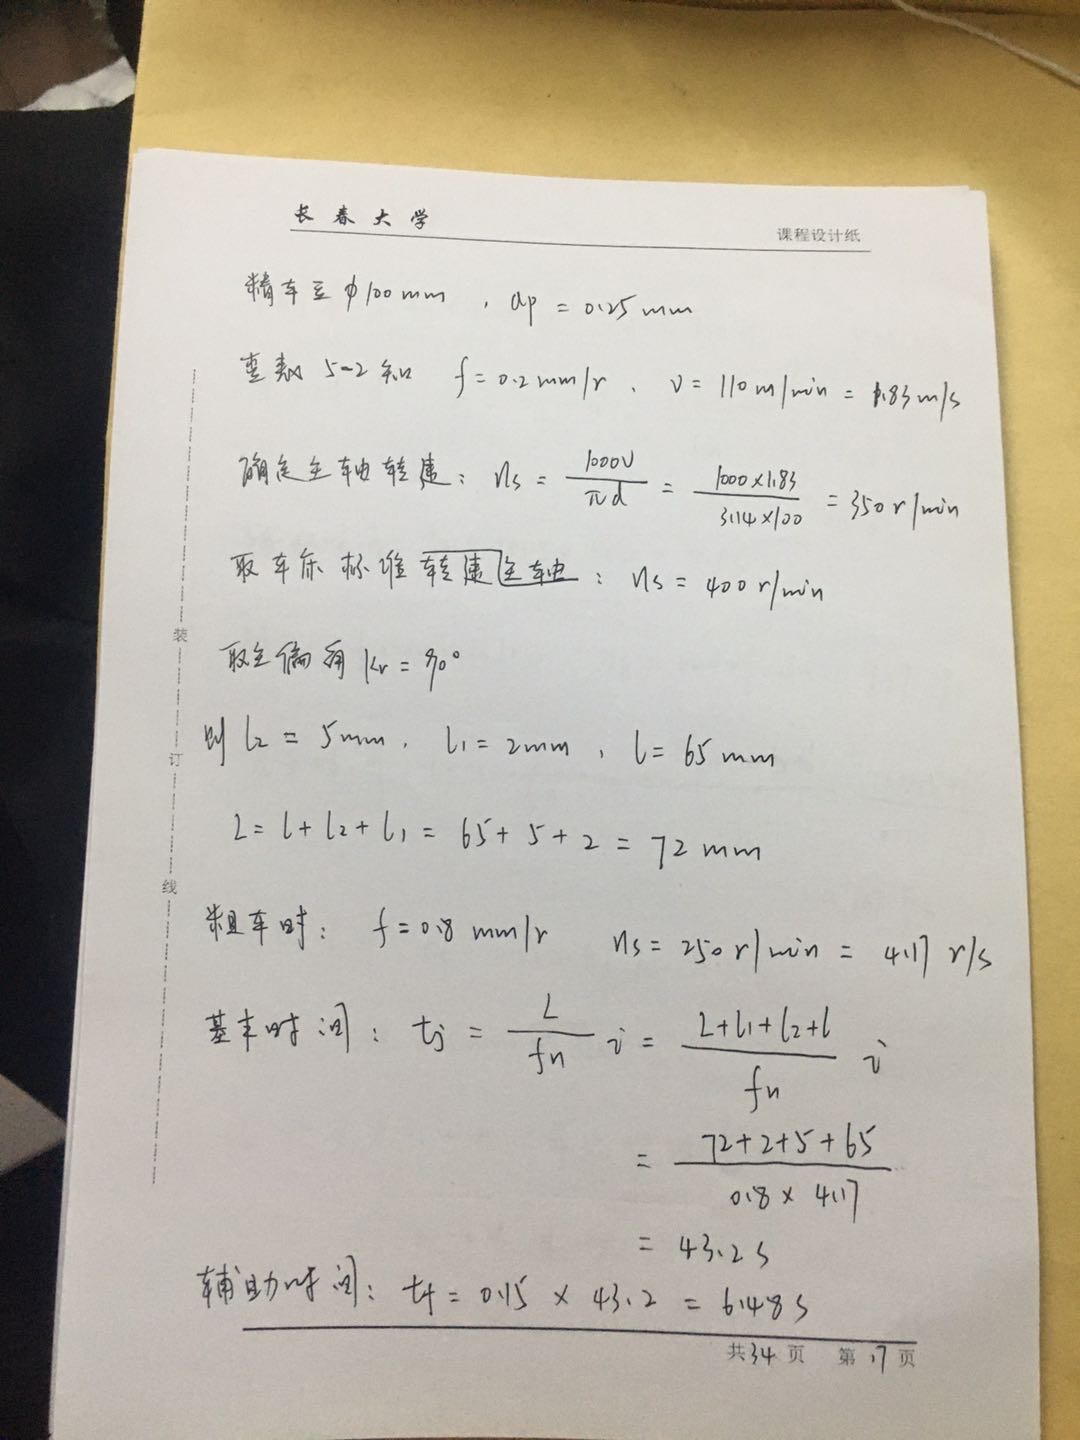 长春大学
课程设计纸
精车至φ100mm，ap=0.25mm
查表5-2知 f=0.2mm/r，v=110m/min=1.83m/s
确定主轴转速：ns=1000v/πd=1000×1.83/3.14×100=350r/min
取车床标准转速主轴：ns=400r/min
取主偏角kr=90°
则l2=5mm，l1=2mm，l=65mm
L=l+l2+l1=65+5+2=72mm
粗车时：f=0.8mm/r ns=250r/min=4.17r/s
基本时间：tj=L/fn i=L+l1+l2+l/fn i
=72+2+5+65/0.8×4.17
=43.2s
辅助时间：tf=0.15×43.2=6.48s
共34页 第17页
装
订
线